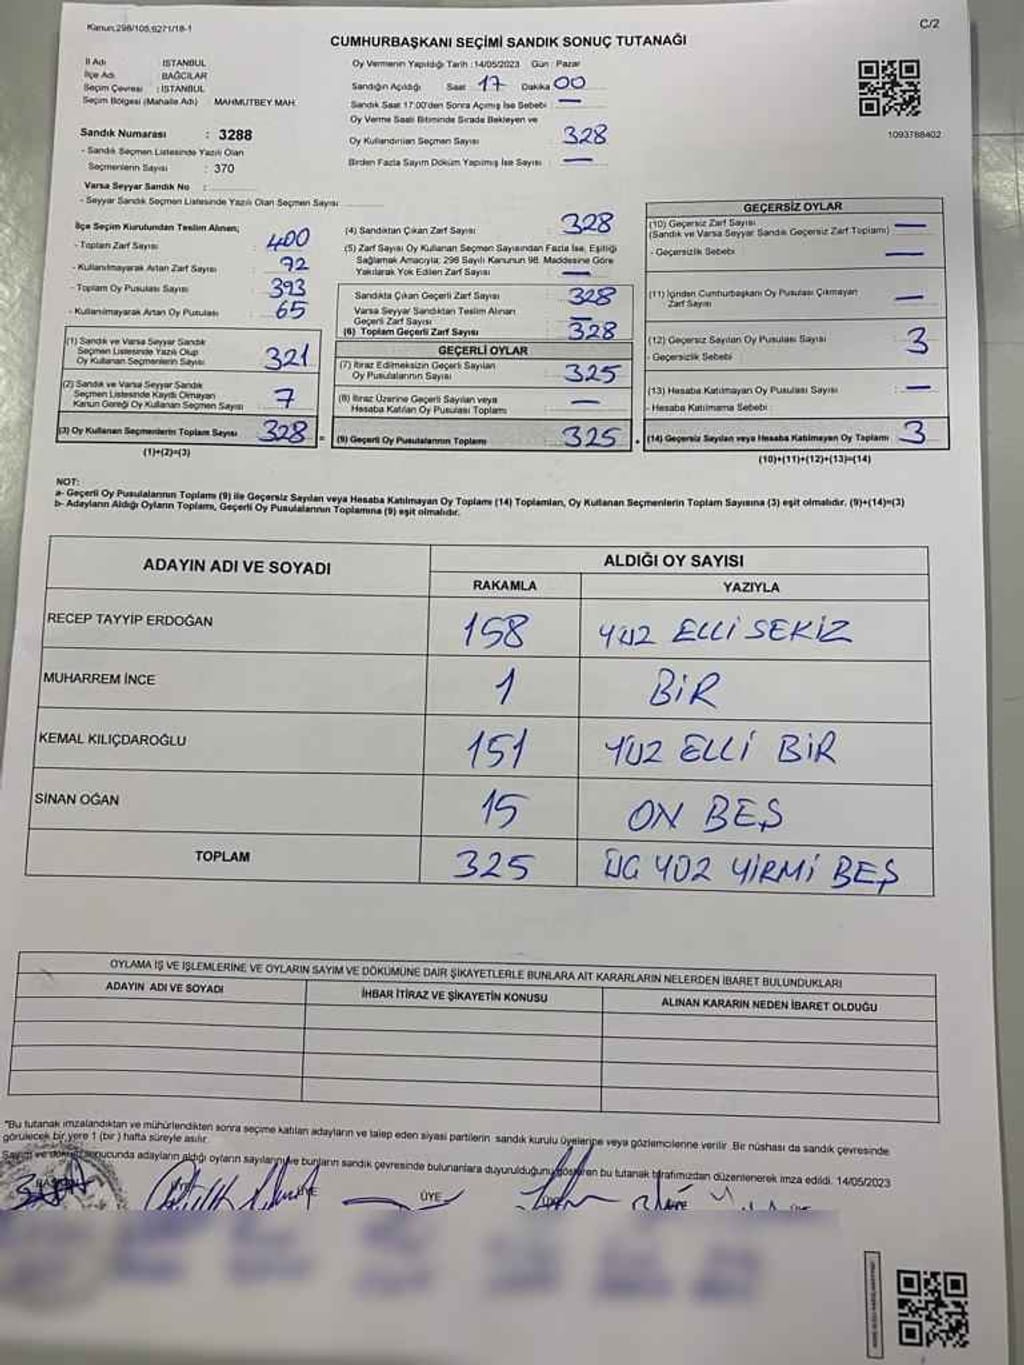 Kanun:298/105,6271/18-1
C/2
CUMHURBAŞKANI SEÇİMİ SANDIK SONUÇ TUTANAĞI
İl Adı : İSTANBUL
İlçe Adı : BAĞCILAR
Seçim Çevresi : İSTANBUL
Seçim Bölgesi (Mahalle Adı) MAHMUTBEY MAH.
Sandık Numarası : 3288
- Sandık Seçmen Listesinde Yazılı Olan
Seçmenlerin Sayısı : 370
Varsa Seyyar Sandık No :
- Seyyar Sandık Seçmen Listesinde Yazılı Olan Seçmen Sayısı
Oy Vermenin Yapıldığı Tarih :14/05/2023 Gün : Pazar
Sandığın Açıldığı Saat 17 Dakika 00
Sandık Saat 17:00'den Sonra Açılmış İse Sebebi : —
Oy Verme Saati Bitiminde Sırada Bekleyen ve
Oy Kullandırılan Seçmen Sayısı : 328
Birden Fazla Sayım Döküm Yapılmış İse Sayısı : —
1093788402
İlçe Seçim Kurulundan Teslim Alınan;
- Toplam Zarf Sayısı : 400
- Kullanılmayarak Artan Zarf Sayısı : 72
- Toplam Oy Pusulası Sayısı : 393
- Kullanılmayarak Artan Oy Pusulası : 65
(1) Sandık ve Varsa Seyyar Sandık
Seçmen Listesinde Yazılı Olup
Oy Kullanan Seçmenlerin Sayısı : 321
(2) Sandık ve Varsa Seyyar Sandık
Seçmen Listesinde Kaydı Olmayan
Kanun Gereği Oy Kullanan Seçmen Sayısı : 7
(3) Oy Kullanan Seçmenlerin Toplam Sayısı : 328 =
(1)+(2)=(3)
(4) Sandıktan Çıkan Zarf Sayısı : 328
(5) Zarf Sayısı Oy Kullanan Seçmen Sayısından Fazla İse, Eşitliği
Sağlamak Amacıyla; 298 Sayılı Kanunun 98. Maddesine Göre
Yakılarak Yok Edilen Zarf Sayısı : —
Sandıkta Çıkan Geçerli Zarf Sayısı : 328
Varsa Seyyar Sandıktan Teslim Alınan
Geçerli Zarf Sayısı : —
(6) Toplam Geçerli Zarf Sayısı : 328
GEÇERLİ OYLAR
(7) İtiraz Edilmeksizin Geçerli Sayılan
Oy Pusulalarının Sayısı : 325
(8) İtiraz Üzerine Geçerli Sayılan veya
Hesaba Katılan Oy Pusulası Toplamı : —
(9) Geçerli Oy Pusulalarının Toplamı : 325 +
GEÇERSİZ OYLAR
(10) Geçersiz Zarf Sayısı
(Sandık ve Varsa Seyyar Sandık Geçersiz Zarf Toplamı) —
- Geçersizlik Sebebi : —
(11) İçinden Cumhurbaşkanı Oy Pusulası Çıkmayan
Zarf Sayısı : —
(12) Geçersiz Sayılan Oy Pusulası Sayısı : 3
- Geçersizlik Sebebi :
(13) Hesaba Katılmayan Oy Pusulası Sayısı : —
- Hesaba Katılmama Sebebi :
(14) Geçersiz Sayılan veya Hesaba Katılmayan Oy Toplamı : 3
(10)+(11)+(12)+(13)=(14)
NOT:
a- Geçerli Oy Pusulalarının Toplamı (9) ile Geçersiz Sayılan veya Hesaba Katılmayan Oy Toplamı (14) Toplamları, Oy Kullanan Seçmenlerin Toplam Sayısına (3) eşit olmalıdır. (9)+(14)=(3)
b- Adayların Aldığı Oyların Toplamı, Geçerli Oy Pusulalarının Toplamına (9) eşit olmalıdır.
ADAYIN ADI VE SOYADI ALDIĞI OY SAYISI
RAKAMLA YAZIYLA
RECEP TAYYİP ERDOĞAN 158 YÜZ ELLİ SEKİZ
MUHARREM İNCE 1 BİR
KEMAL KILIÇDAROĞLU 151 YÜZ ELLİ BİR
SİNAN OĞAN 15 ON BEŞ
TOPLAM 325 ÜÇ YÜZ YİRMİ BEŞ
OYLAMA İŞ VE İŞLEMLERİNE VE OYLARIN SAYIM VE DÖKÜMÜNE DAİR ŞİKAYETLERLE BUNLARA AİT KARARLARIN NELERDEN İBARET BULUNDUKLARI
ADAYIN ADI VE SOYADI İHBAR İTİRAZ VE ŞİKAYETİN KONUSU ALINAN KARARIN NEDEN İBARET OLDUĞU
*Bu tutanak imzalandıktan ve mühürlendikten sonra seçime katılan adayların ve talep eden siyasi partilerin sandık kurulu üyelerine veya gözlemcilerine verilir. Bir nüshası da sandık çevresinde
görülecek bir yere 1 (bir ) hafta süreyle asılır.
Sayım ve döküm sonucunda adayların aldığı oyların sayılarını ve bunların sandık çevresinde bulunanlara duyurulduğunu gösteren bu tutanak tarafımızdan düzenlenerek imza edildi. 14/05/2023
BAŞKAN ÜYE ÜYE ÜYE ÜYE